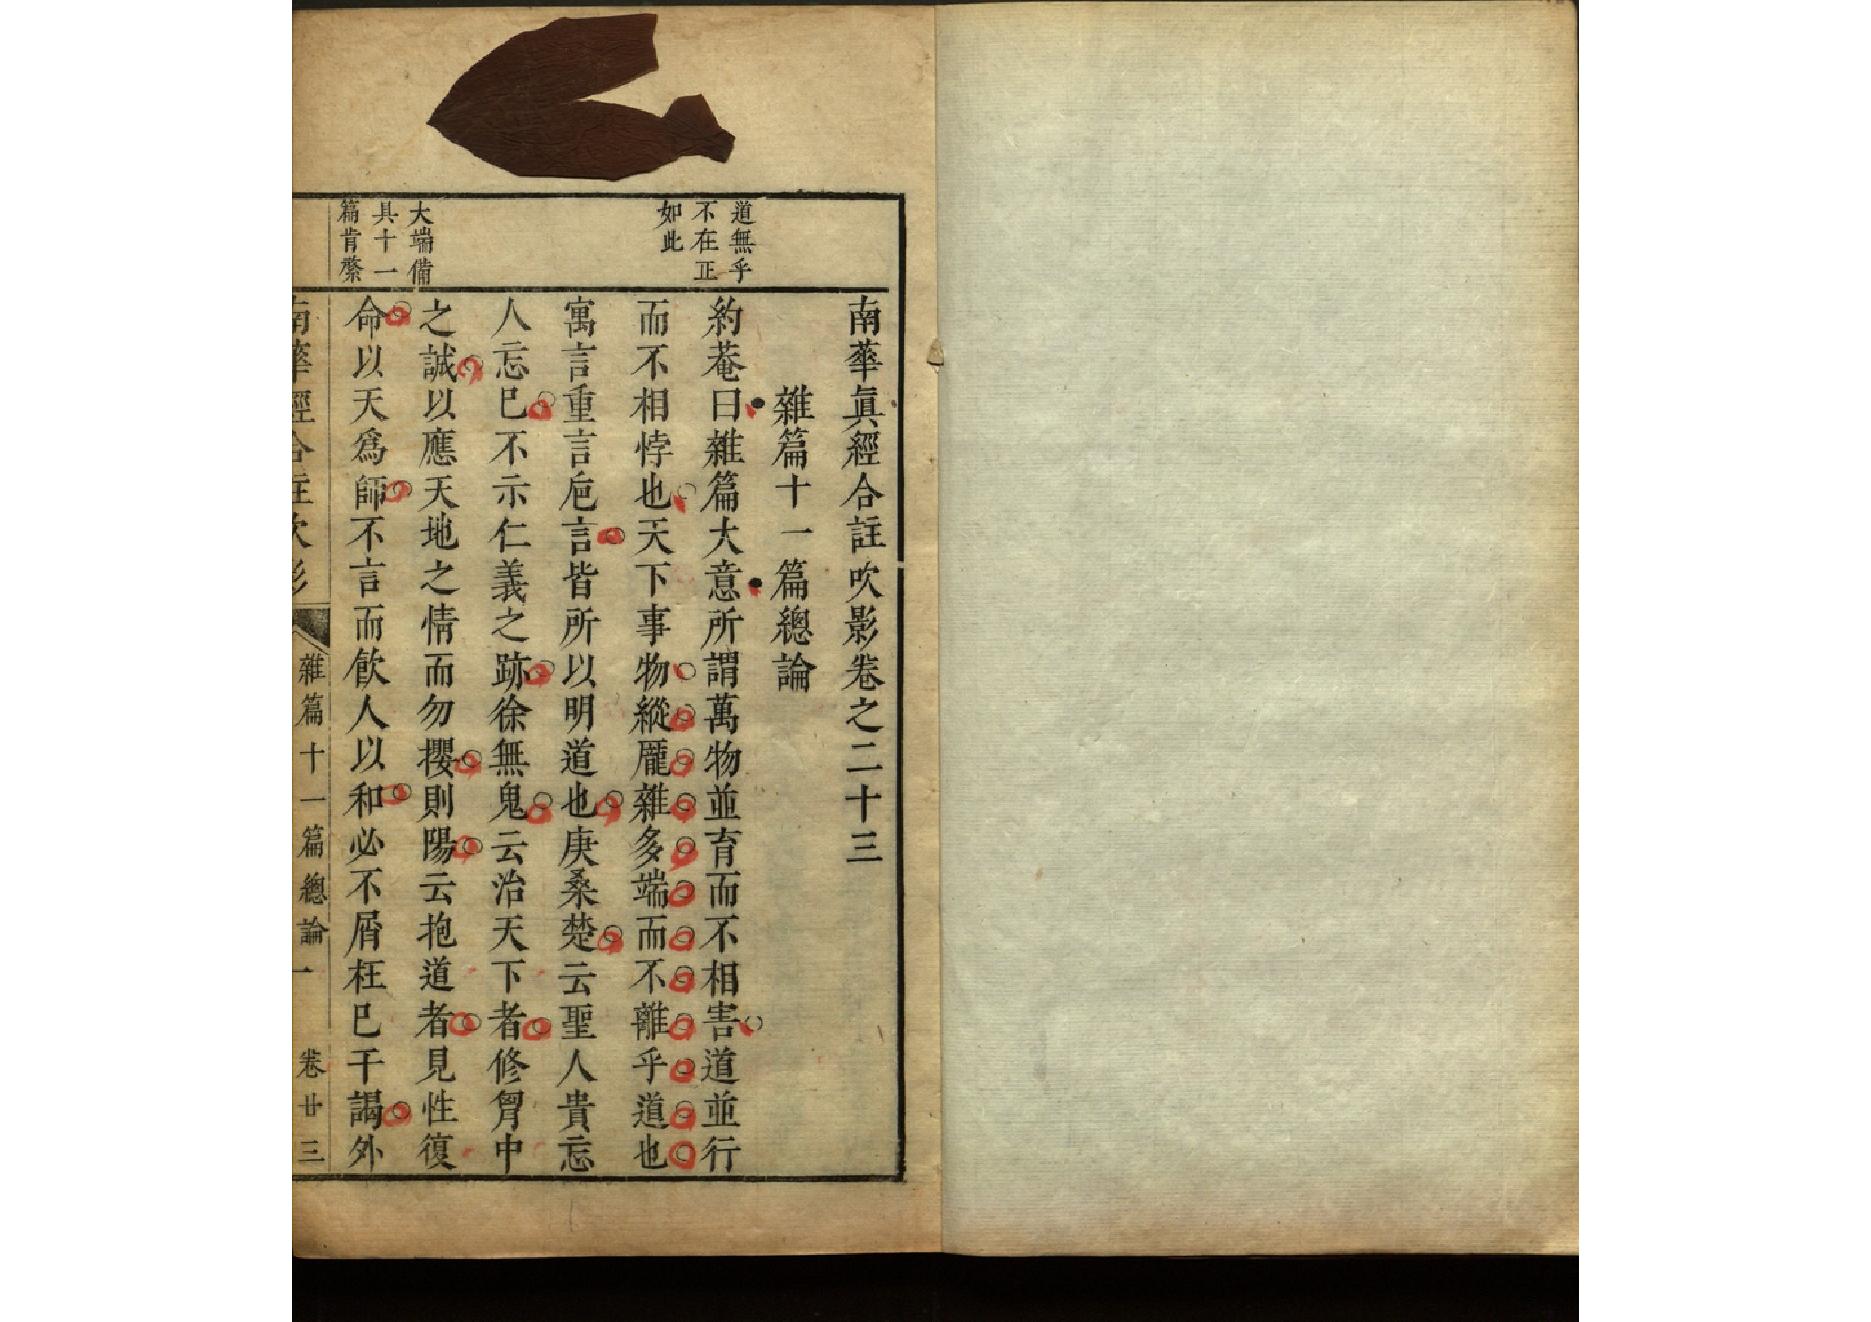 南華眞經合註吹影卷之二十三
雜篇十一篇總論
道無乎
不在正
如此
約菴曰雜篇大意所謂萬物並育而不相害道並行
而不相悖也天下事物縱厖雜多端而不離乎道也
寓言重言巵言皆所以明道也庚桑楚云聖人貴忘
人忘巳不示仁義之跡徐無鬼云治天下者修胷中
大端備
具十一
篇肯綮
之誠以應天地之情而勿攖則陽云抱道者見性復
命以天爲師不言而飮人以和必不屑枉巳干謁外
南華經合註吹影
雜篇十一篇總論一
卷廿三